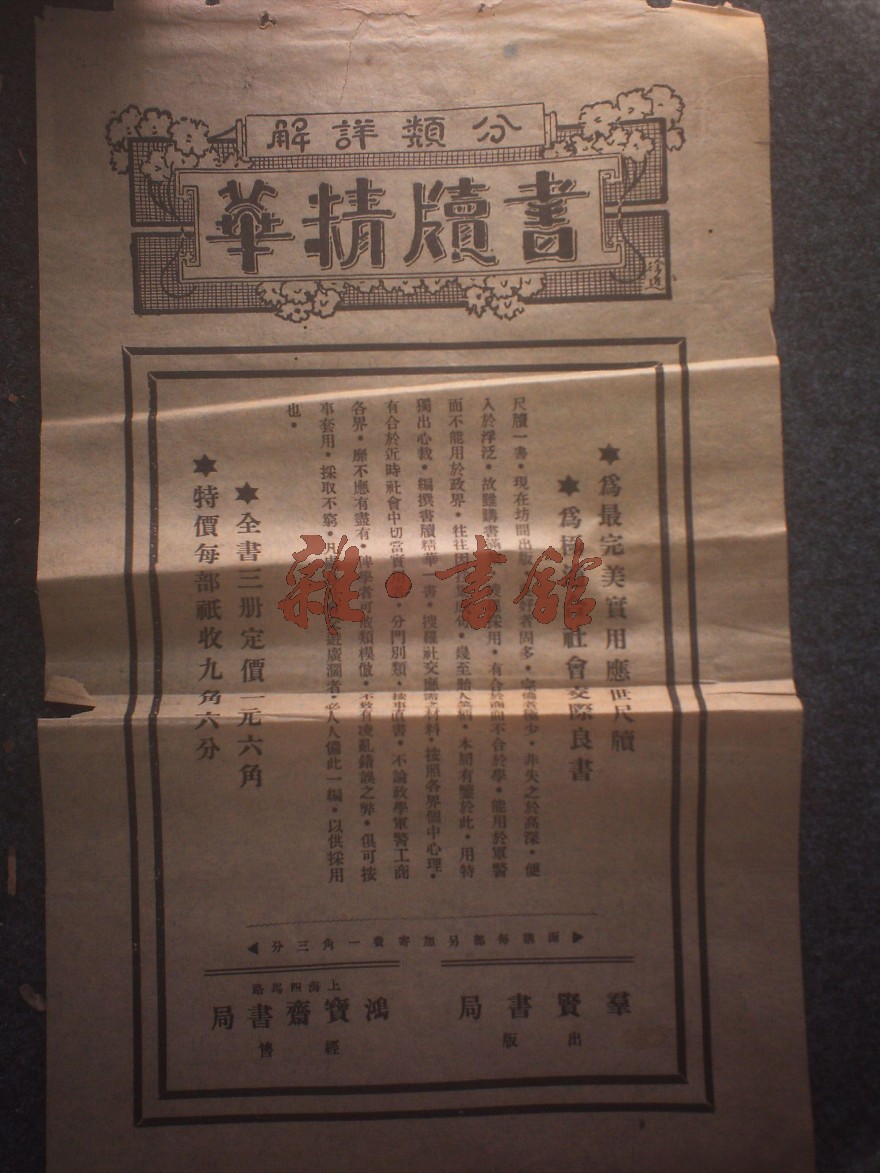 分類詳解
書牘精華
★為最完美實用應世尺牘
★為 社會交際良書
尺牘一書・現在坊間出版 好者固多・ 極少・非失之於高深・便
入於浮泛・故雖購書滿 採用・有合於商而不合於學・能用於軍警
而不能用於政界・往往 幾至 本局有鑒於此・用特
獨出心裁・編撰書牘精華一書・搜羅社交應需材料・按照各界個中心理・
有合於近時社會中切當實 ・分門別類・ 直書・不論政學軍警工商
各界・靡不應有盡有・俾學者可依類模倣・不致有凌亂錯誤之弊・俱可按
事套用・採取不窮・凡 遊廣濶者・必人人備此一編・以供採用
也・
★全書三册定價一元六角
★特價每部祇收九角六分
函購每部另加寄費一角三分
羣賢書局
出版
上海四馬路
鴻寶齋書局
經售
雜・書館